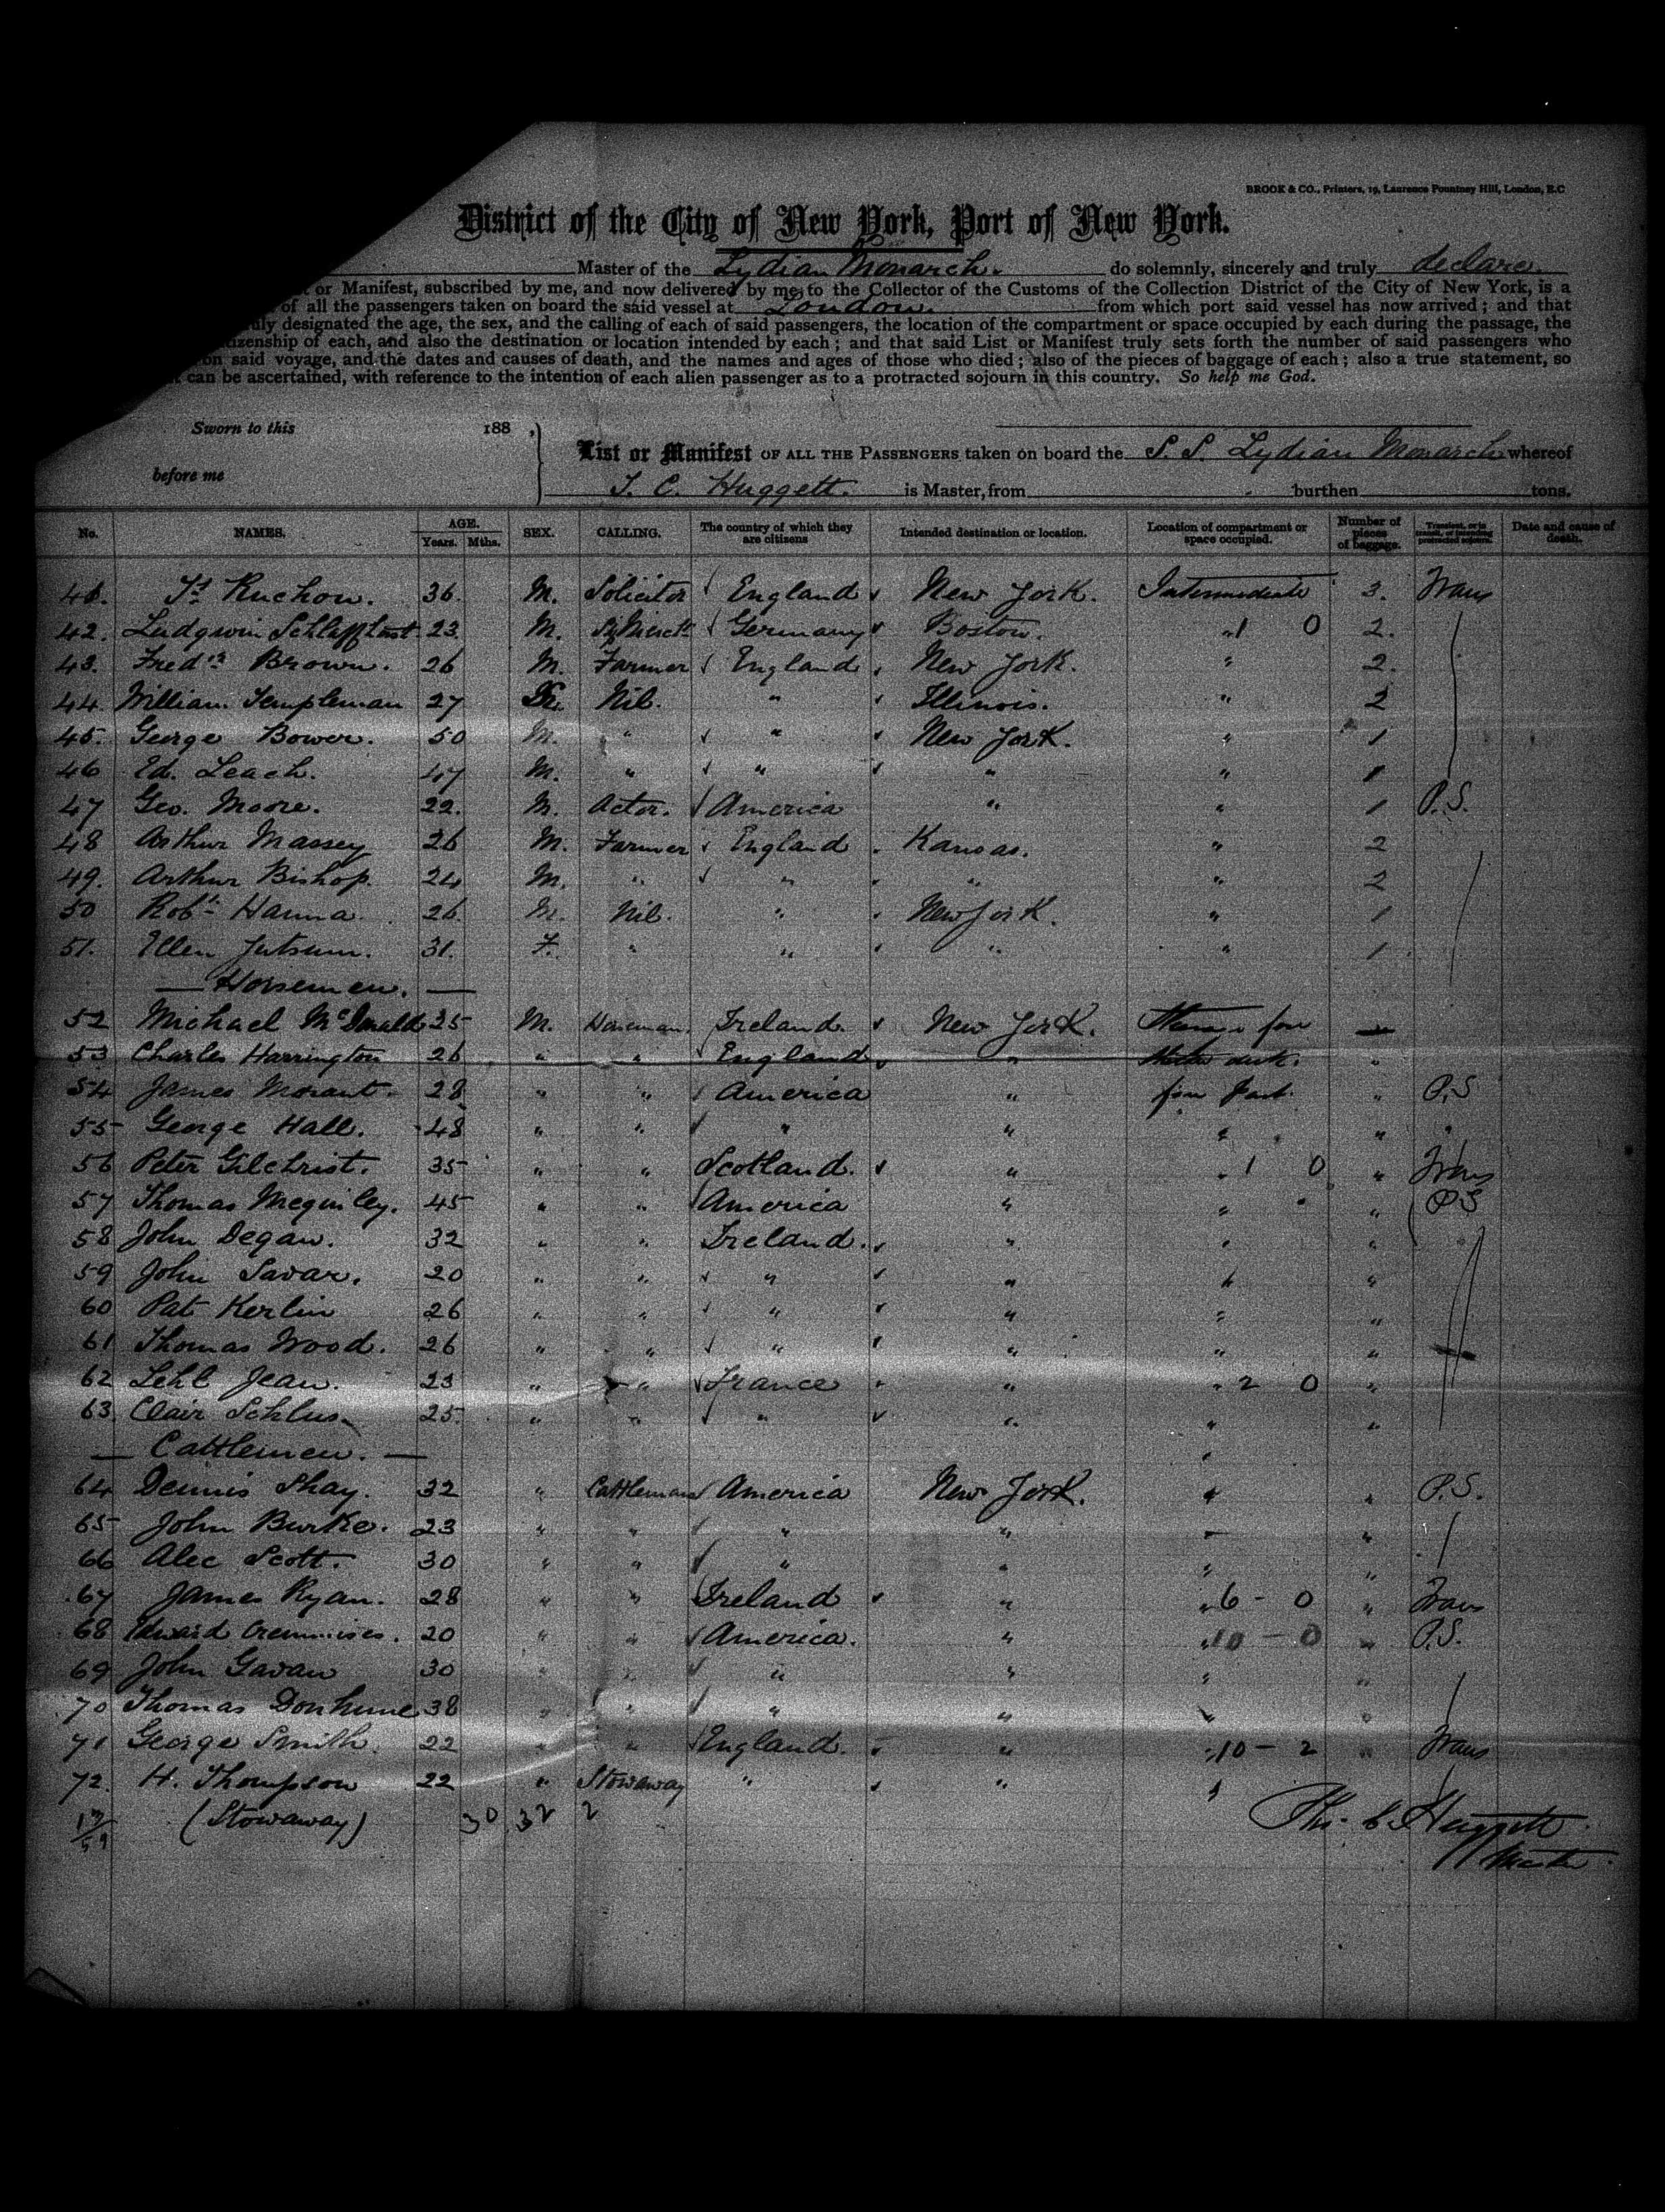 BROOK & CO., Printers, 19, Laurence Pountney Hill, London, E.C
District of the City of New York, Port of New York.
Master of the Lydian Monarch. do solemnly, sincerely and truly declare
or Manifest, subscribed by me, and now delivered by me to the Collector of the Customs of the Collection District of the City of New York, is a
of all the passengers taken on board the said vessel at London. from which port said vessel has now arrived; and that
designated the age, the sex, and the calling of each of said passengers, the location of the compartment or space occupied by each during the passage, the
of each, and also the destination or location intended by each; and that said List or Manifest truly sets forth the number of said passengers who
on said voyage, and the dates and causes of death, and the names and ages of those who died; also of the pieces of baggage of each; also a true statement, so
can be ascertained, with reference to the intention of each alien passenger as to a protracted sojourn in this country. So help me God.
Sworn to this 188 .
before me
List or Manifest OF ALL THE PASSENGERS taken on board the S.S. Lydian Monarch whereof
T. C. Huggett. is Master, from burthen tons.
No. NAMES. AGE. Years. Mths. SEX. CALLING. The country of which they are citizens Intended destination or location. Location of compartment or space occupied. Number of pieces of baggage. Transient, or in transit, or intending protracted sojourn. Date and cause of death.
Ruchow. 36. M. Solicitor England New York. Intermediate 3. Trans
42. 23 M. Germany Boston. " 1 0 2.
43. Fredk. Brown. 26 M. Farmer England New York. " 2.
44. William Templeman 27 Nil. " Illinois. " 2
45. George Bower. 50 M. " " New York. " 1
46 Ed. Leach. 47 M. " " " " 1
47 Geo. Moore. 22. M. Actor. America " " 1 P.S.
48 Arthur Massey 26 M. Farmer England Kansas. " 2
49. Arthur Bishop. 24 M. " " " " 2
50 Robt. Hanna. 26. M. Nil. " New York. " 1
51. Ellen Jutsum. 31. F. " " " " 1
— Horsemen. —
52 Michael McDonald 35 M. Horseman. Ireland. New York.
53 Charles Harrington 26 " " England " "
54 James Morant. 28 " " America " " P.S
55 George Hall. 48 " " " " " " "
56 Peter Gilchrist. 35 " " Scotland. " " 1 0 " Trans
57 Thomas Mequiley. 45 " " America " " " P.S
58 John Degan. 32 " " Ireland. " " "
59 John Savar. 20 " " " " " "
60 Pat Kerlin 26 " " " " " "
61 Thomas Wood. 26 " " " " " "
62 Lehl Jean. 23 " " France " " 2 0 "
63 Clair Schlus 25. " " " " " "
— Cattlemen. — "
64 Dennis Shay. 32 " Cattleman America New York. " " P.S.
65 John Burke. 23 " " " " " "
66 Alec Scott. 30 " " " " " "
67 James Ryan. 28 " " Ireland " " 6 - 0 " Trans
68 Edward 20 " " America. " " 10 - 0 " P.S.
69 John Gavan 30 " " " " " "
70 Thomas Donhune 38 " " " " " "
71 George Smith. 22 " " England. " " 10 - 2 " Trans
72. H. Thompson 22 " Stowaway " " "
(Stowaway) 30 32 2
Huggett
Master